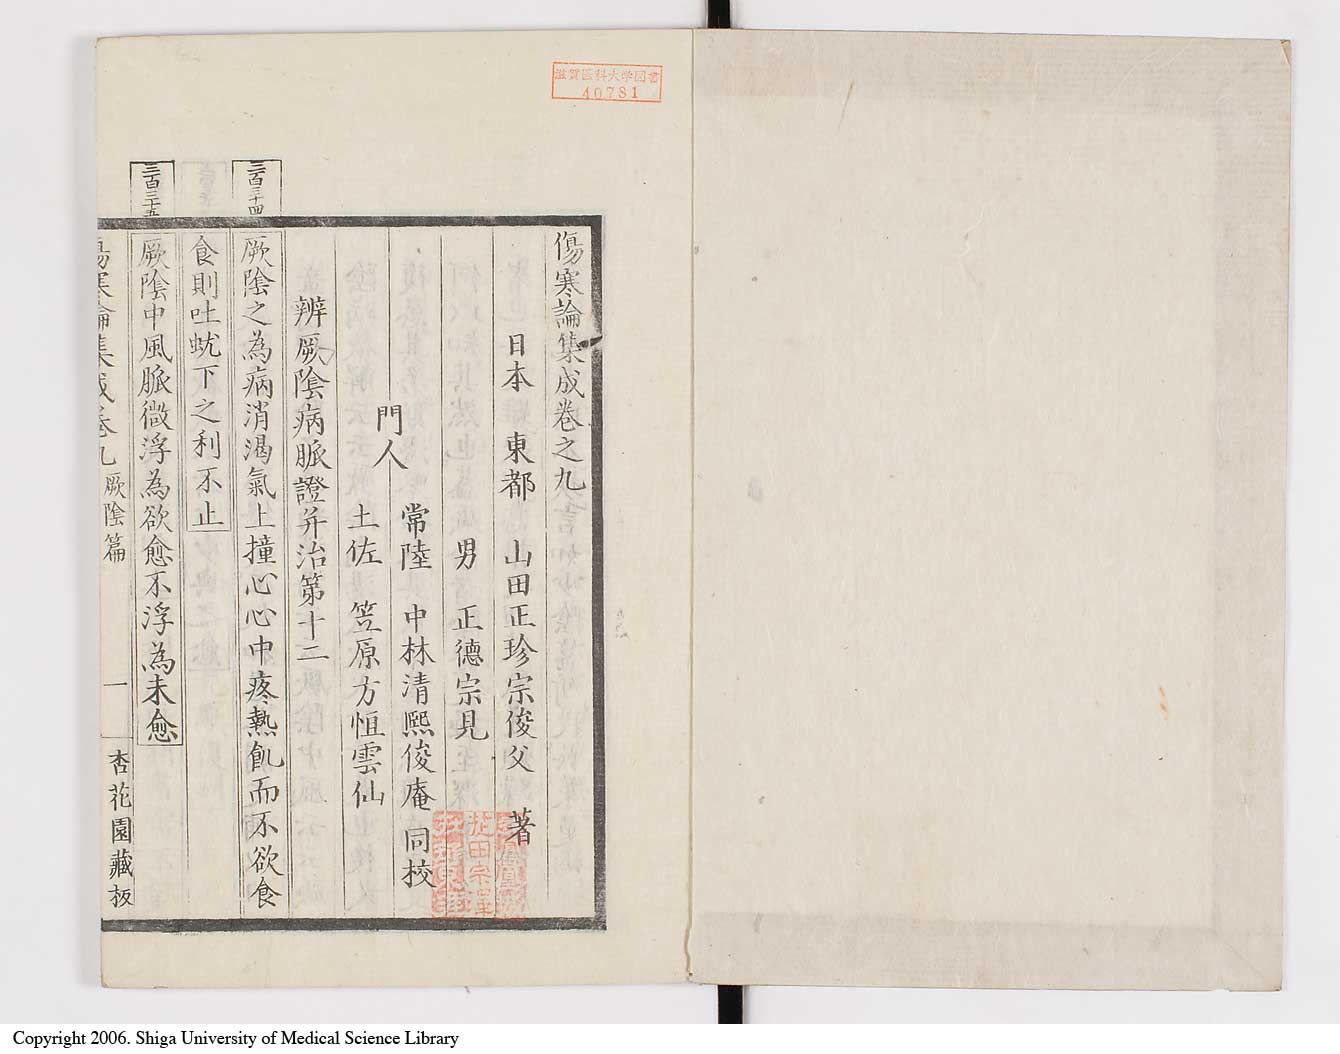 滋賀医科大学図書
40781
傷寒論集成巻之九
日本 東都 山田正珍宗俊父 著
男 正德宗見
門人
常陸 中林清熙俊庵 同校
土佐 笠原方恒雲仙
辨厥陰病脈證并治第十二
三百三十四
厥陰之為病消渴氣上撞心心中疼熱飢而不欲食
食則吐蚘下之利不止
三百三十五
厥陰中風脈微浮為欲愈不浮為未愈
傷寒論集成巻九 厥陰篇 一 杏花園藏板
Copyright 2006. Shiga University of Medical Science Library